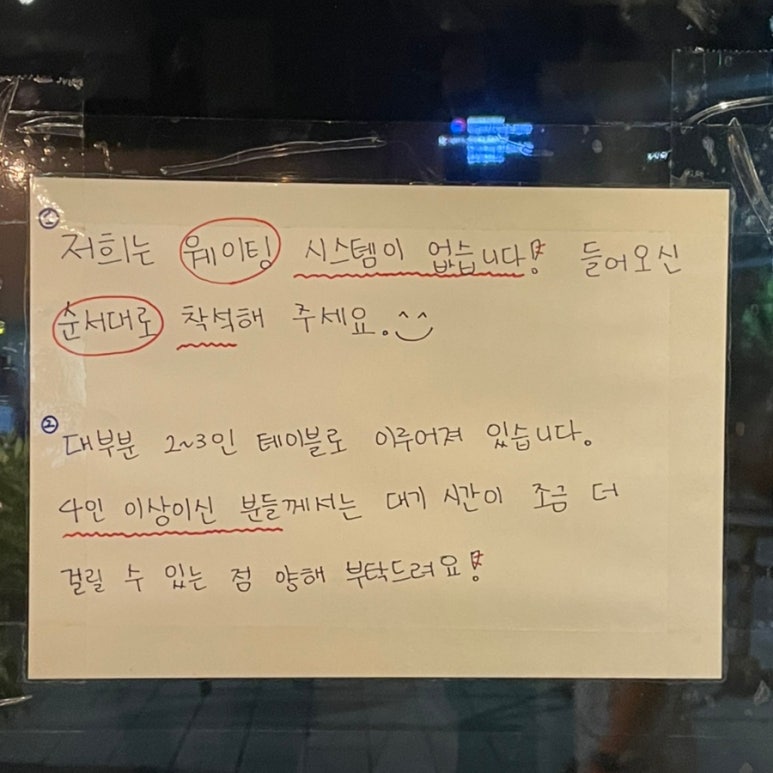 ① 저희는 웨이팅 시스템이 없습니다! 들어오신
순서대로 착석해 주세요.^^
② 대부분 2~3인 테이블로 이루어져 있습니다.
4인 이상이신 분들께서는 대기 시간이 조금 더
걸릴 수 있는 점 양해 부탁드려요!